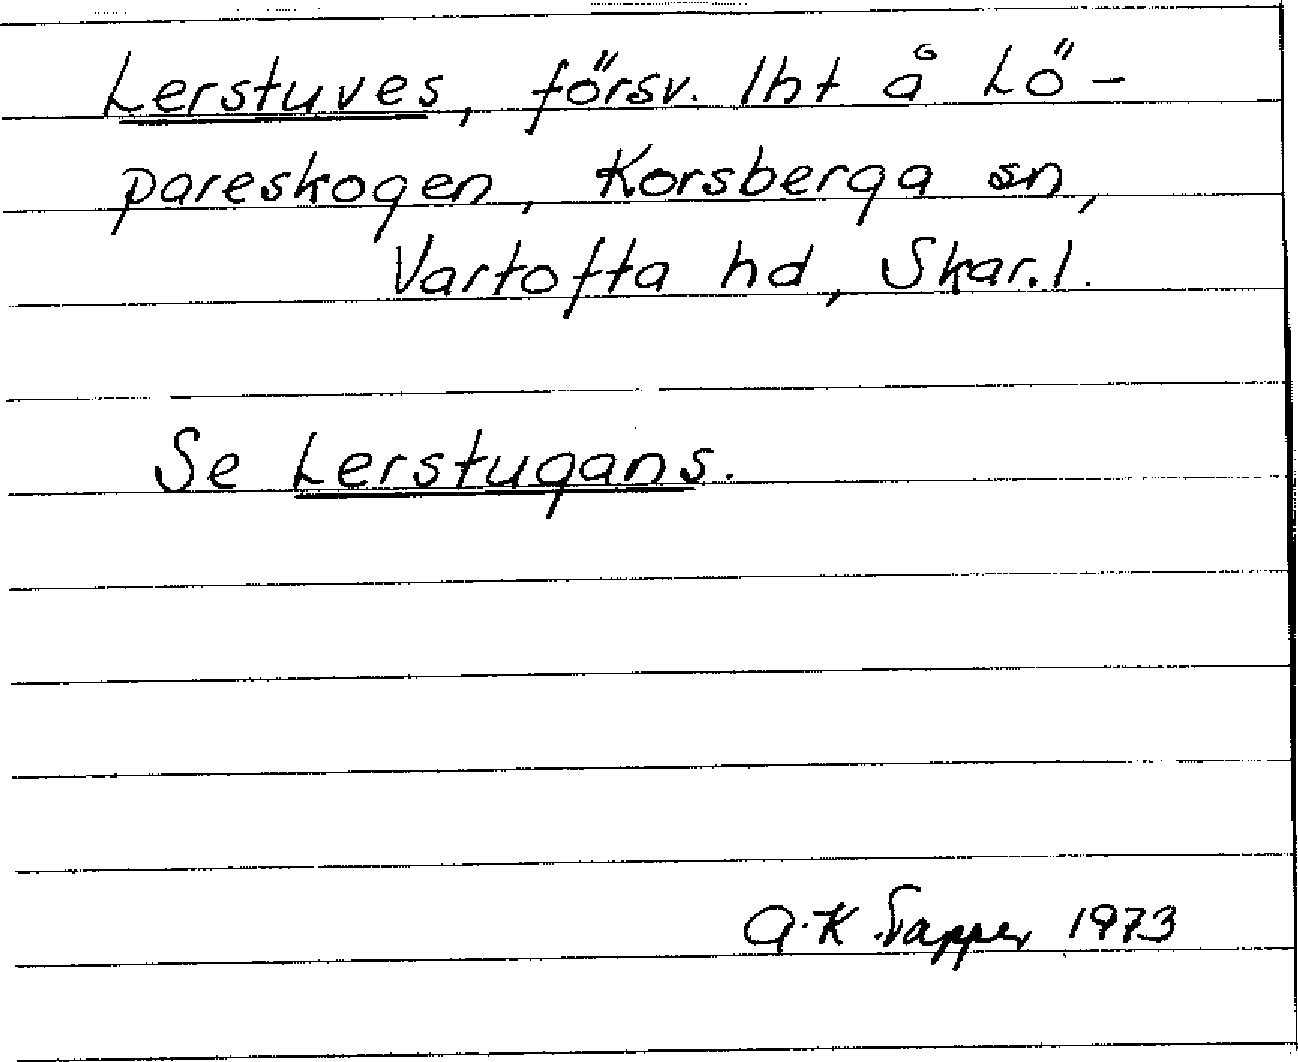 Lerstuves, försv. lht å Lö-
pareskogen, Korsberga sn,
Vartofta hd, Skar.l.
Se Lerstugans.
A.K. Tapper 1973